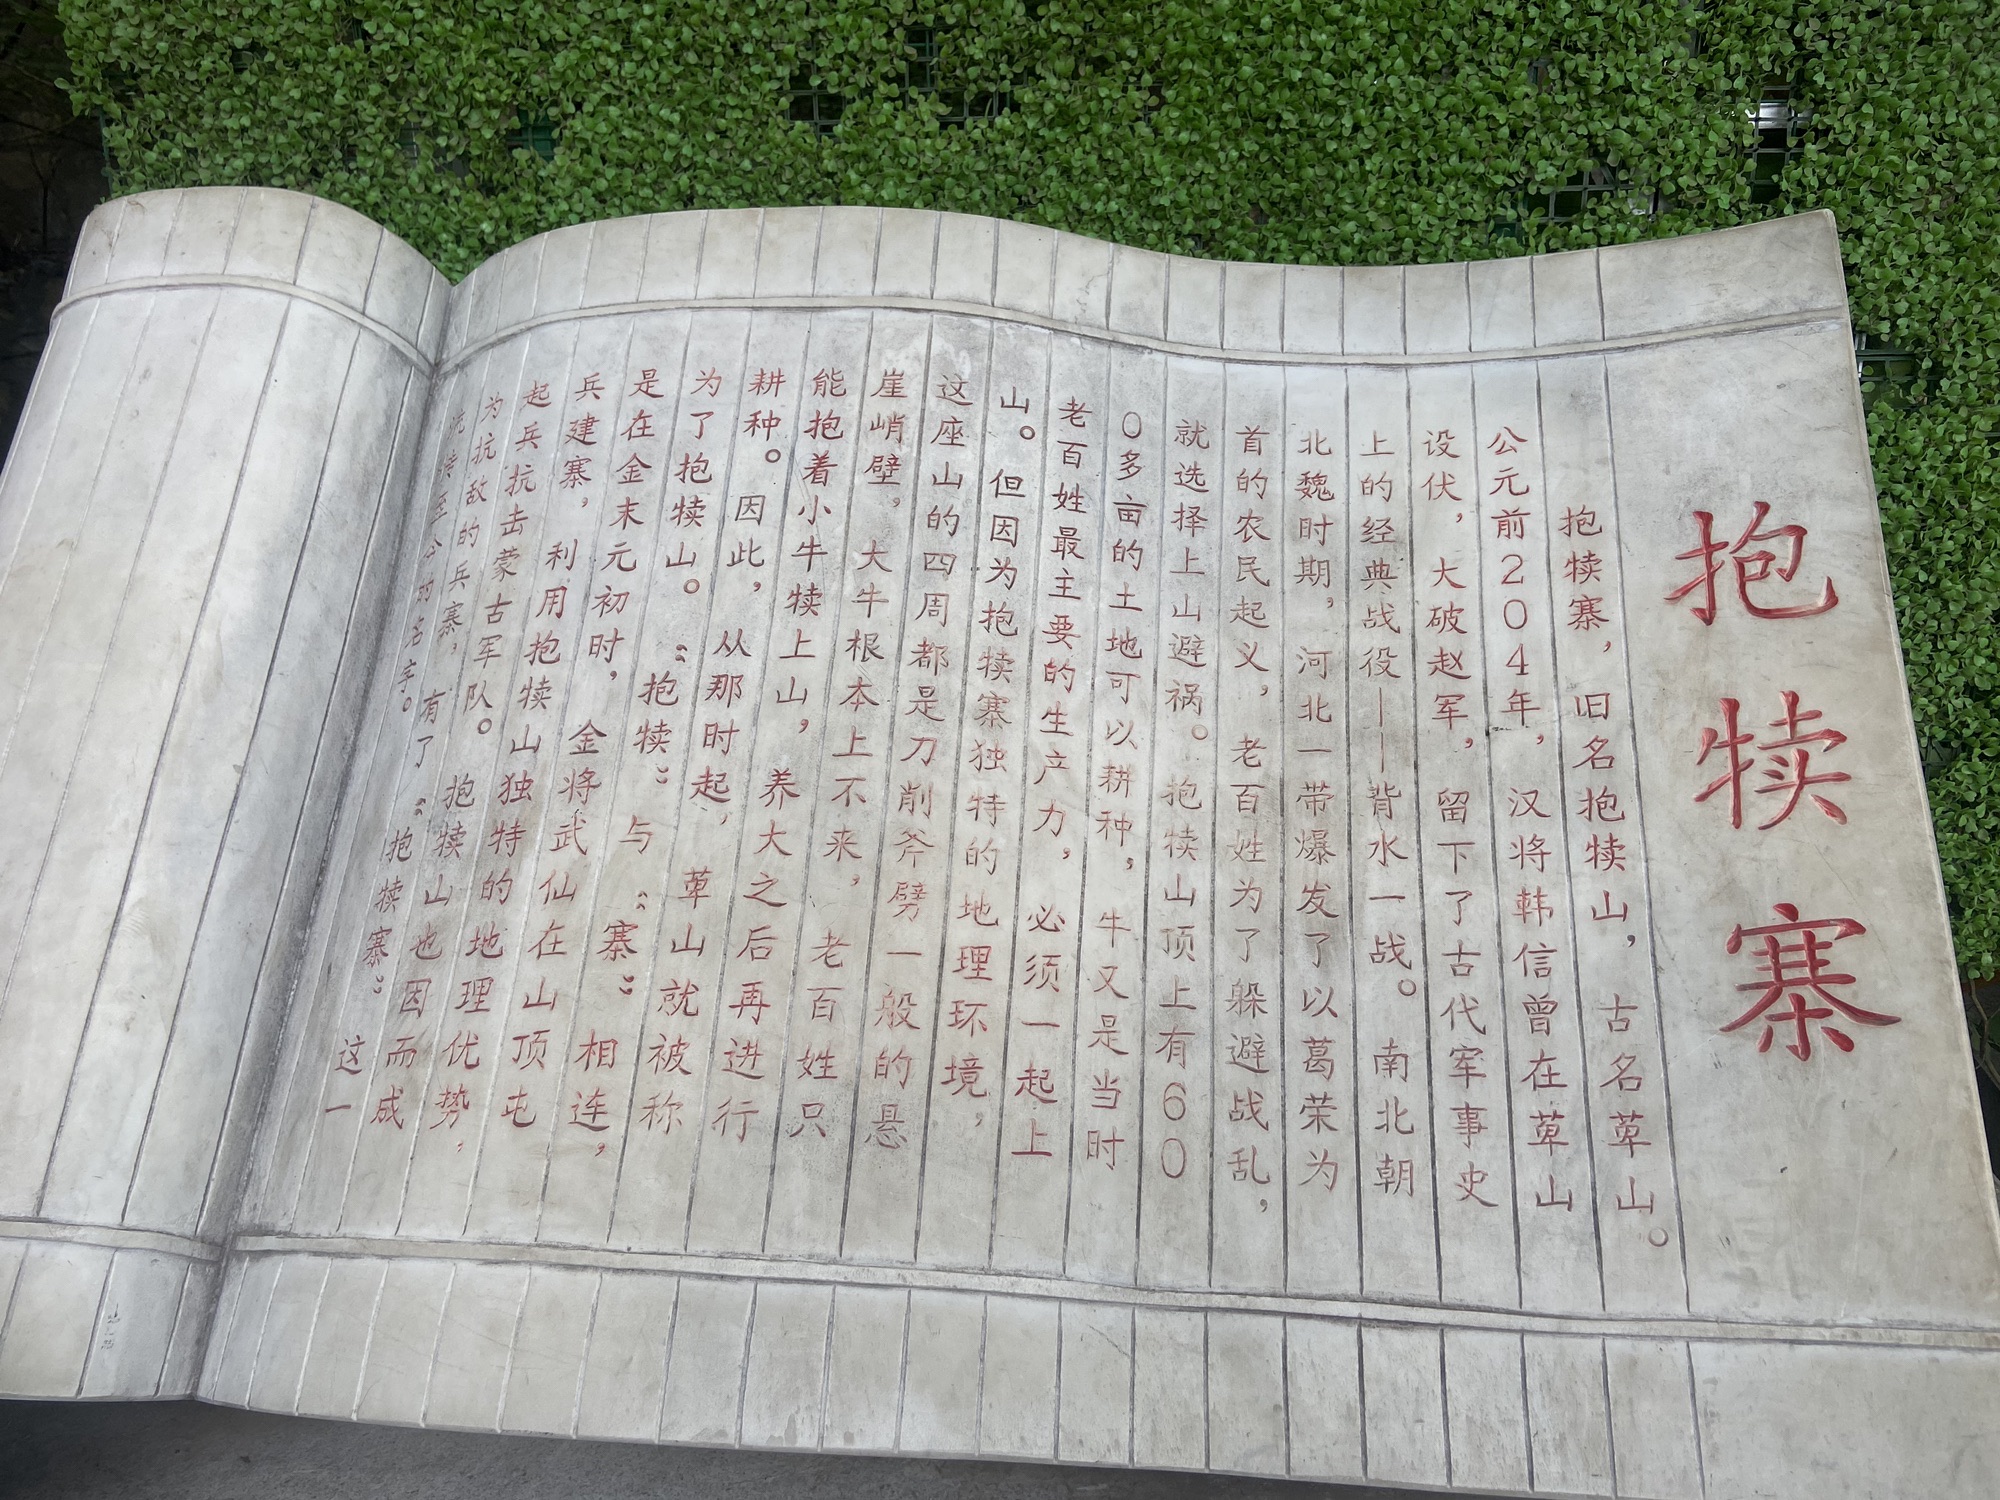 抱犊寨
抱犊寨，旧名抱犊山，古名萆山。
公元前204年，汉将韩信曾在萆山
设伏，大破赵军，留下了古代军事史
上的经典战役——背水一战。南北朝
北魏时期，河北一带爆发了以葛荣为
首的农民起义，老百姓为了躲避战乱，
就选择上山避祸。抱犊山顶上有60
0多亩的土地可以耕种，牛又是当时
老百姓最主要的生产力，必须一起上
山。但因为抱犊寨独特的地理环境，
这座山的四周都是刀削斧劈一般的悬
崖峭壁，大牛根本上不来，老百姓只
能抱着小牛犊上山，养大之后再进行
耕种。因此，从那时起，萆山就被称
为了抱犊山。“抱犊”与“寨”相连，
是在金末元初时，金将武仙在山顶屯
兵建寨，利用抱犊山独特的地理优势，
起兵抗击蒙古军队。抱犊山也因而成
为抗敌的兵寨，有了“抱犊寨”这一
流传至今的名字。